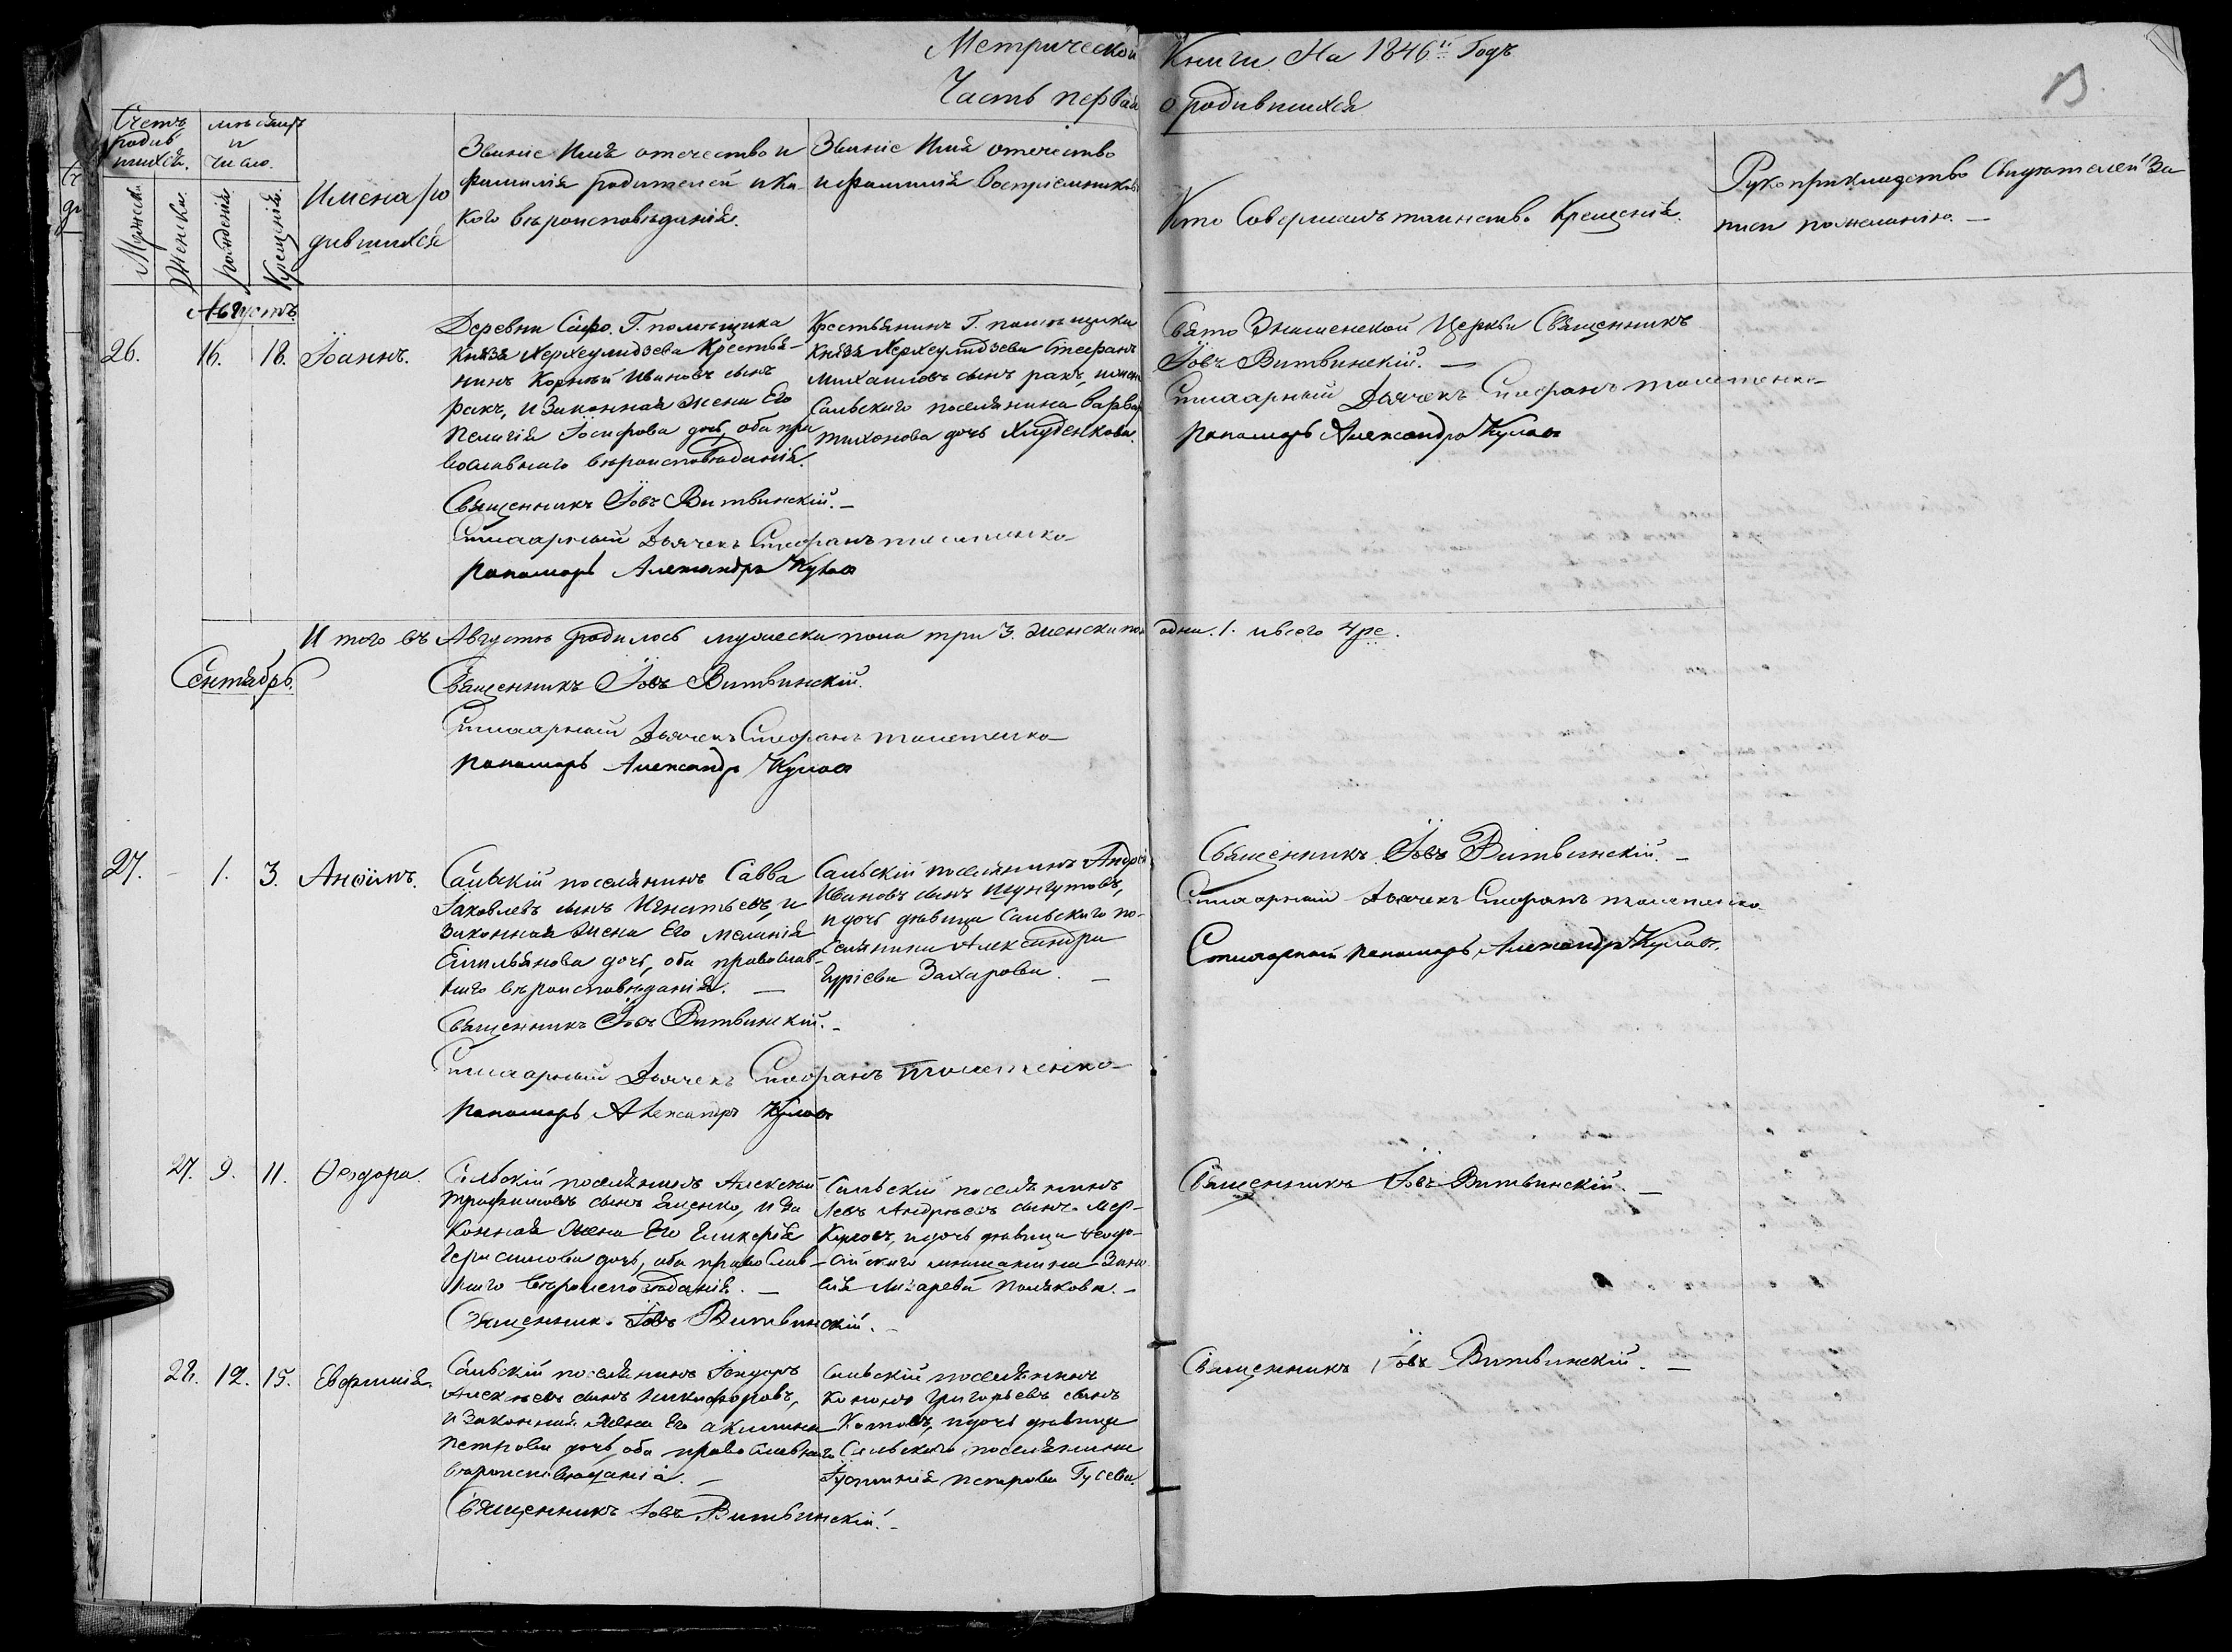 Метрической Книги На 1846й Годъ
Часть первая о родившихся
13.
Счетъ родившихся.
мѣсяцъ и число.
Мужеска.
Женска.
рожденія.
Крещенія.
Имена родившихся
Званіе Имя отечество и
фамилія родителей и ка
кого вѣроисповѣданія.
Званіе Имя отечество
и фамилія воспріемниковъ
Кто Совершалъ таинство Крещенія.
Рукоприкладство Свидѣтелей За
писи по желанію. —
Августъ
26. 16. 18. Іоаннъ.
Деревни Сафо. Г. помѣщика
Князя Херхеулидзева Крестья-
нинъ Корнѣй Ивановъ сынъ
ракъ, и Законная жена Его
Пелагія Іосифова дочь, оба пра
вославнаго вѣроисповѣданія.
Священникъ Іовъ Витвинскій. —
Дьячекъ Стефанъ
пономарь Александръ
Крестьянинъ Г. помѣщика
Князя Херхеулидзева Стефанъ
Михаиловъ сынъ ракъ, и
Сальского поселянина Варвар
тихонова дочь
Свято Знаменской Церкви Священникъ
Іовъ Витвинскій. —
Дьячекъ Стефанъ
пономарь Александръ
И того въ Августѣ родилось мужеска пола три 3. женска пол одна. 1. и всего 4ре.
Сентябрь.
Священникъ Іовъ Витвинскій.
Дьячекъ Стефанъ
пономарь Александръ
27. - 1. 3. Анѳимъ.
Сальскій поселянинъ Савва
Іаковлевъ сынъ Игнатьевъ, и
Законная жена Его Меланія
Емельянова дочь, оба православ-
наго вѣроисповѣданія. —
Священникъ Іовъ Витвинскій. -
Дьячекъ Стефанъ
пономарь Александръ
Сальскій поселянинъ Андрей
Ивановъ сынъ
и дочь дѣвица Сальского по-
селянина Александра
Гуріева Захарова. —
Священникъ Іовъ Витвинскій. -
Дьячекъ Стефанъ
пономарь Александръ
27. 9. 11. Ѳеодора.
Сальскій поселянинъ Алексѣй
Трофимовъ сынъ и За
конная жена Его Гликерія
Герасимова дочь, оба православ-
наго вѣроисповѣданія. —
Священникъ Іовъ Витвинскій. -
Сальскій поселянинъ
Левъ Андрѣевъ сынъ Мер-
куловъ, и дочь дѣвица Ѳеодо-
сійского мѣщанина
Лазарева Полякова. -
Священникъ Іовъ Витвинскій. —
28. 12. 15. Евфимія.
Сальскій поселянинъ
Алексѣевъ сынъ Никифоровъ,
и Законная жена Его Акилина
Петрова дочь, оба православнаго
вѣроисповѣданія. —
Священникъ Іовъ Витвинскій. -
Сальскій поселянинъ
Кононъ Григорьевъ сынъ
Котовъ, и дочь дѣвица
Сальского поселянина
Петрова Гусева.
Священникъ Іовъ Витвинскій. —